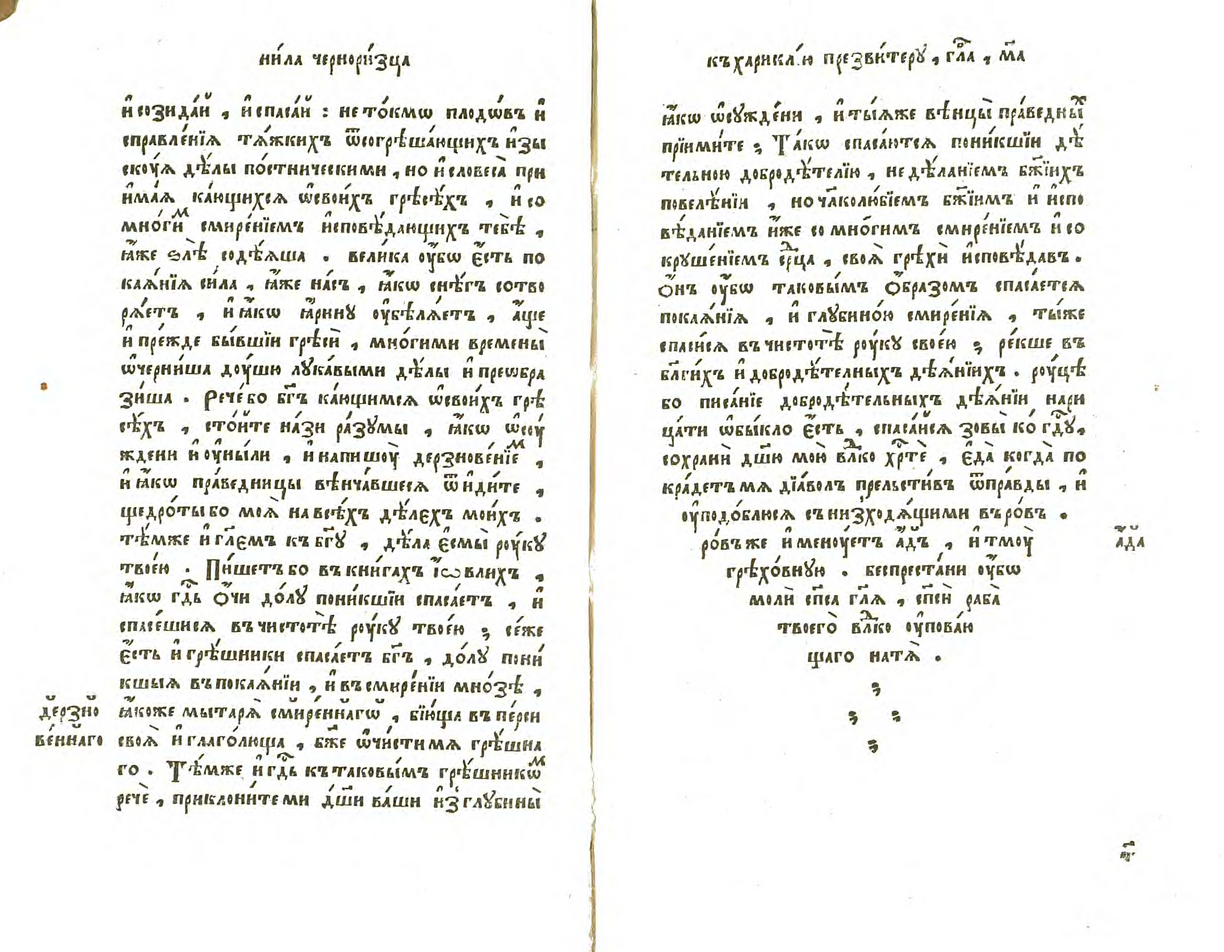 ни́ла чернори́зца
и҆созида́й , и҆спаса́й : нето́кмѡ плодѡ́въ и҆
справле́нїѧ тѧ́жкихъ ѿсогрѣша́ющихъ и҆зы
скꙋ́ѧ дѣ́лы по́стническими , но и҆словеса̀ при
и҆ма́ѧ ка́ющихсѧ ѡ҆свои́хъ грѣсѣ́хъ , и҆со
мно́гиⷨ смире́нїемъ и҆сповѣ́дающихъ тебѣ̀ ,
ꙗ҆́же ѕлѣ̀ содѣ́ѧша . велика ᲂу҆́бѡ є҆́сть по
каѧ́нїѧ си́ла , ꙗ҆́же на́съ , ꙗ҆́кѡ снѣ́гъ сотво
рѧ́етъ , и҆ ꙗ҆́кѡ ꙗ҆́рину ᲂу҆бѣлѧ́етъ , а҆́ще
и҆ пре́жде бы́вшїи грѣси̑ , мно́гими времены̀
ѡ҆черни́ша дꙋ́шю лꙋка́выми дѣ́лы и҆ преѡбра
зи́ша . Рече́ бо бг҃ъ ка́ющимсѧ ѡ҆свои́хъ грѣ
сѣ́хъ , сто́ите на́зи ра́зумы , ꙗ҆́кѡ ѡ҆сꙋ
ждени и҆ᲂу҆ны́ли , и҆напишꙋ̀ дерзнове́нїеⷨ ,
и҆ ꙗ҆́кѡ пра́ведницы вѣнча́вшесѧ ѿи҆ди́те ,
щедро́ты бо моѧ̀ навсѣ́хъ дѣ́лєхъ мои́хъ .
тѣ́мже и҆ гл҃емъ къ бг҃ꙋ , дѣ́ла є҆смы̀ рꙋ́кꙋ
твое́ю . Пи́шетъ бо въ кни́гахъ і҆ѡ́влихъ ,
ꙗ҆́кѡ гдⷭ҇ь ѻ҆́чи до́лꙋ пони́кшїи спаса́етъ , и҆
спасе́шисѧ въ чистотѣ̀ рꙋ́кꙋ твое́ю ; се́же
є҆́сть и҆ грѣ́шники спаса́етъ бг҃ъ , до́лꙋ пони́
кшыѧ въ покаѧ́нїи , и҆ въ смире́нїи мно́зѣ ,
ꙗ҆́коже мытарѧ̀ смире́ннагѡ , бїю́ща въ пе́рси
своѧ̀ и҆ глаго́люща , бж҃е ѡ҆чи́сти мѧ грѣ́шна
го . Тѣ́мже и҆ гдⷭ҇ь къ таковы́мъ грѣ́шникѡⷨ
речѐ , приклони́те ми дш҃и ва́ши и҆з̾ глꙋбины̀
де́рзно
ве́ннаго
къ харикле́ю презви́терꙋ , гла҃ , м҃а
ꙗ҆́кѡ ѡ҆сꙋжде́ни , и҆ ты́ѧже вѣнцы̀ пра́ведныⷯ
прїими́те ; Та́кѡ спаса́ютсѧ пони́кшїи дѣ́
тельною добродѣ́телїю , не дѣ́ланїемъ бж҃їихъ
повелѣ́нїи , но чл҃колю́бїемъ бж҃їимъ и҆ и҆спо
вѣ́данїемъ и҆́же со мно́гимъ смире́нїемъ и҆ со
крꙋше́нїемъ ср҃ца , своѧ̀ грѣхѝ и҆сповѣ́давъ .
ѻ҆́нъ ᲂу҆́бѡ таковы́мъ ѻ҆́бразомъ спаса́етсѧ
покаѧ́нїѧ , и҆ глꙋбино́ю смире́нїѧ , ты́же
спаси́сѧ въ чистотѣ̀ рꙋ́кꙋ свое́ю ; ре́кше въ
бл҃ги́хъ и҆ добродѣ́телныхъ дѣѧ́нїихъ . рꙋ́цѣ
бо писа́нїе добродѣ́тельныхъ дѣѧ́нїи нари
ца́ти ѡ҆бы́кло є҆́сть , спаса́йсѧ зовы̀ ко гдⷭ҇ꙋ ,
сохранѝ дш҃ю мою̀ влⷣко хрⷭ҇те , є҆да̀ когда̀ по
кра́детъ мѧ дїа́волъ прельсти́въ ѿпра́вды , и҆
ᲂу҆подо́блюсѧ съ низходѧ́щими въ ро́въ .
ро́въ же и҆менꙋ́етъ а҆́дъ , и҆ тмꙋ̀
грѣхо́внꙋю . беспреста́ни ᲂу҆́бѡ
молѝ сп҃са гл҃ѧ , сп҃сѝ раба̀
твоего̀ влⷣко ᲂу҆пова́ю
щаго на тѧ̀ .
а҆́да